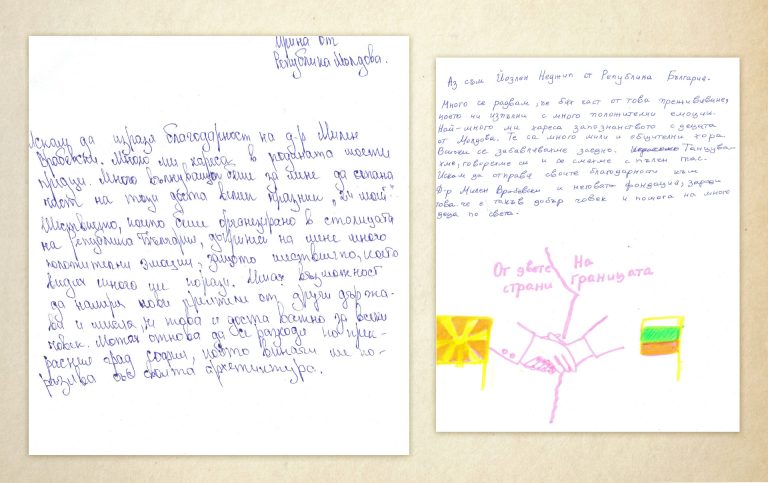 Ирина от
Република Молдова.
Искам да изразя благодарност на д-р Милен
Врабевски. Много ми хареса в
Много
на тези деца
което беше организирано в столицата
на Република България, на мене много
положителни эмоции, защото което
видях много ме порази. Имах възможност
да намеря нови приятели от други държа-
ва и мисля, че това е доста важно за всеки
човек. отново да се разходя по прек-
расния град София, който ме по-
разива със своята архитектура.
Аз съм Йозлем Неджип от Република България.
Много се радвам, че бях част от това преживяване,
което ни изпълни с много положителни емоции.
Най-много ми хареса запознанството с децата
от Молдова. Те са много мили и общителни хора.
Всички се забавлявахме заедно. Танцува-
хме, говорехме си и се смяхме с пълен глас.
Искам да отправя своите благодарности към
Д-р Милен Врабевски и неговата фондация, заради
това че е такъв добър човек и помага на много
деца по света.
От двете
страни
На
границата